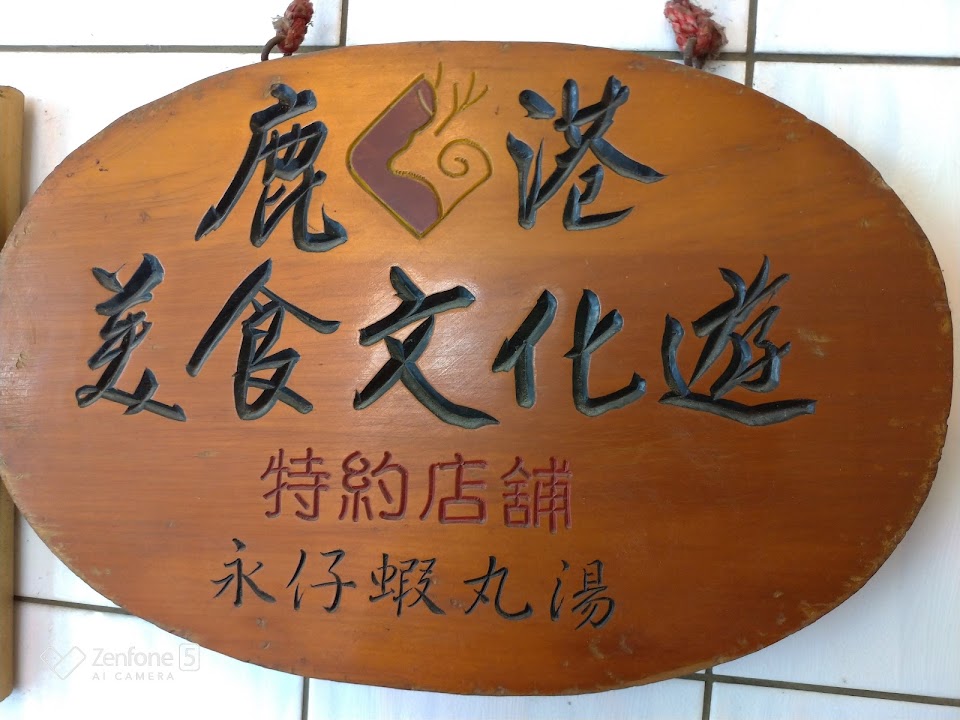 鹿港
美食文化遊
特約店舖
永仔蝦丸湯
Zenfone 5
AI CAMERA